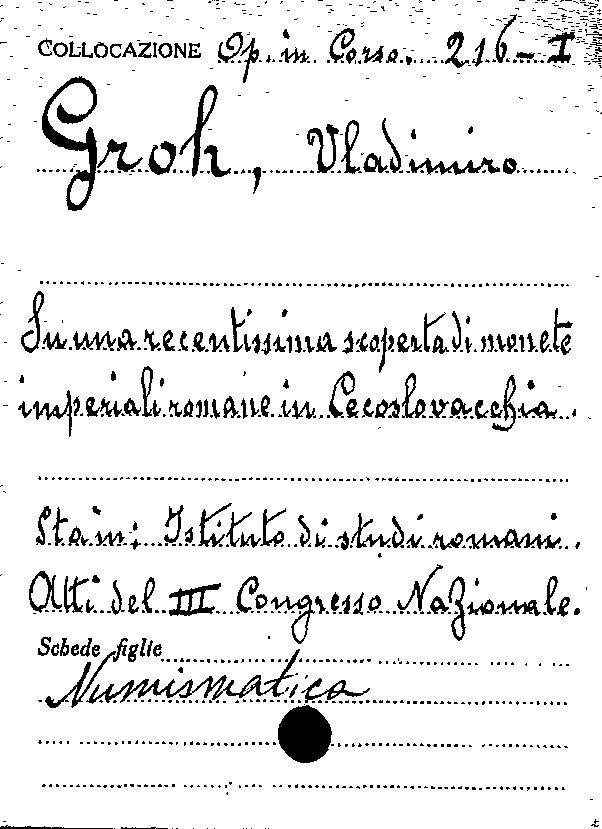 COLLOCAZIONE Op. in Corso. 216 - I
Groh, Vladimiro
Su una recentissima scoperta di monete
imperiali romane in Cecoslovacchia.
Sta in: Istituto di studi romani.
Atti del III Congresso Nazionale.
Schede figlie
Numismatica